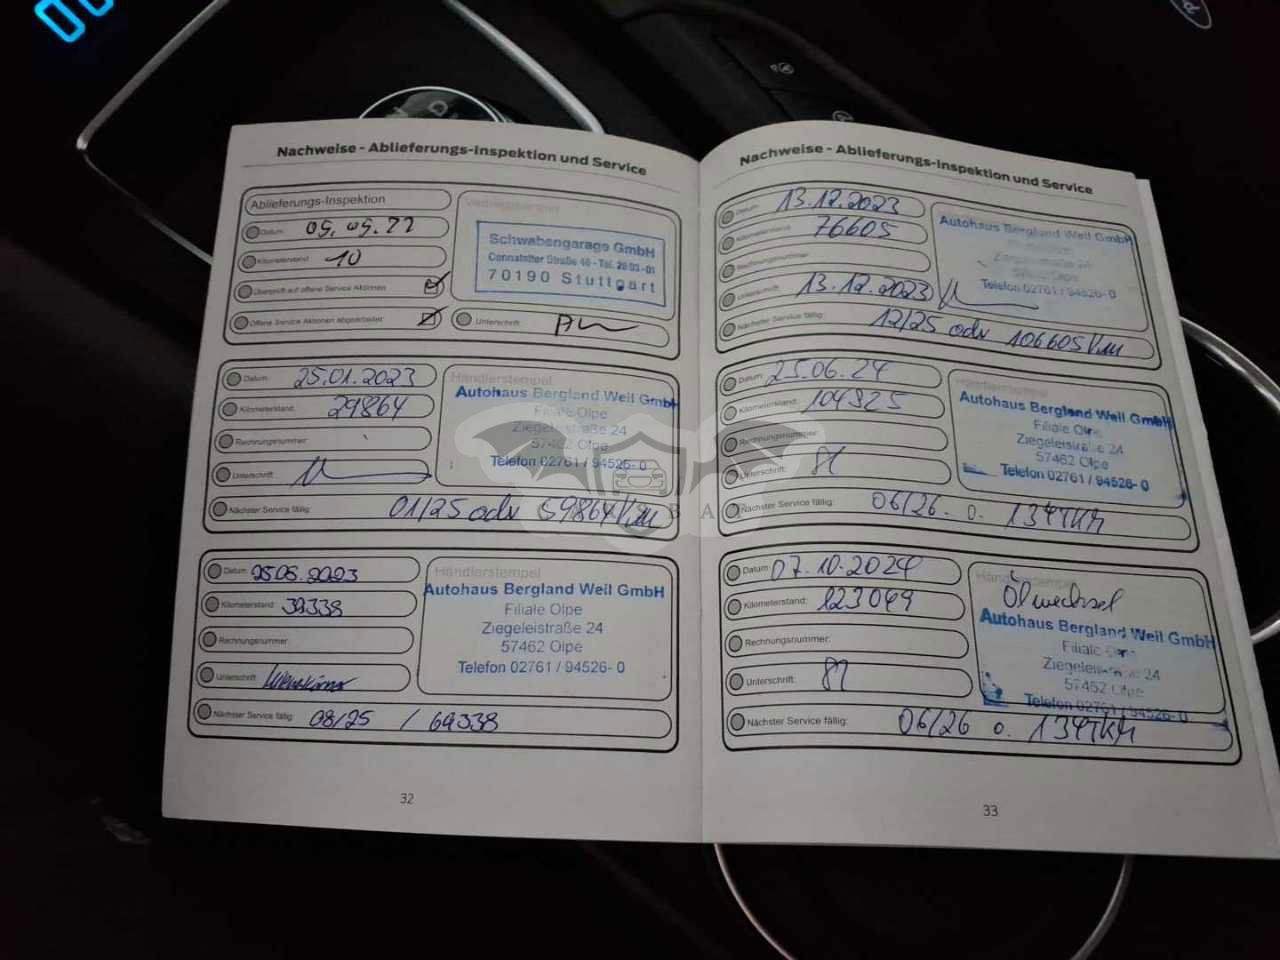 Nachweise - Ablieferungs-Inspektion und Service
Ablieferungs-Inspektion
Datum: 09.09.22
Kilometerstand: 10
Überprüft auf offene Service Aktionen
Offene Service Aktionen abgearbeitet:
Unterschrift:
Schwabengarage GmbH
Cannstatter Straße 46 - Tel. 28 03-01
70190 Stuttgart
Datum: 25.01.2023
Kilometerstand: 29864
Rechnungsnummer:
Unterschrift:
Nächster Service fällig: 01/25 odr 59864 Km
Händlerstempel
Autohaus Bergland Weil GmbH
Filiale Olpe
Ziegeleistraße 24
57462 Olpe
Telefon 02761 / 94526- 0
Datum:
Kilometerstand: 39338
Rechnungsnummer:
Unterschrift:
Nächster Service fällig: 08/25 / 69338
Händlerstempel
Autohaus Bergland Weil GmbH
Filiale Olpe
Ziegeleistraße 24
57462 Olpe
Telefon 02761 / 94526- 0
32
Nachweise - Ablieferungs-Inspektion und Service
Datum: 13.12.2023
Kilometerstand: 76605
Rechnungsnummer:
Unterschrift: 13.12.2023
Nächster Service fällig: 12/25 odr 106605 Km
Autohaus Bergland Weil GmbH
24
Telefon 02761 / 94526- 0
Datum: 25.06.24
Kilometerstand: 104325
Rechnungsnummer:
Unterschrift:
Nächster Service fällig: 06/26 o. 134TKM
Händlerstempel
Autohaus Bergland Weil GmbH
Filiale Olpe
Ziegeleistraße 24
57462 Olpe
Telefon 02761 / 94526- 0
Datum: 07.10.2024
Kilometerstand: 123049
Rechnungsnummer:
Unterschrift:
Nächster Service fällig: 06/26 o. 134TKM
Ölwechsel
Autohaus Bergland Weil GmbH
Filiale
Ziegeleistraße 24
57462 Olpe
Telefon 02761 / 94526- 0
33